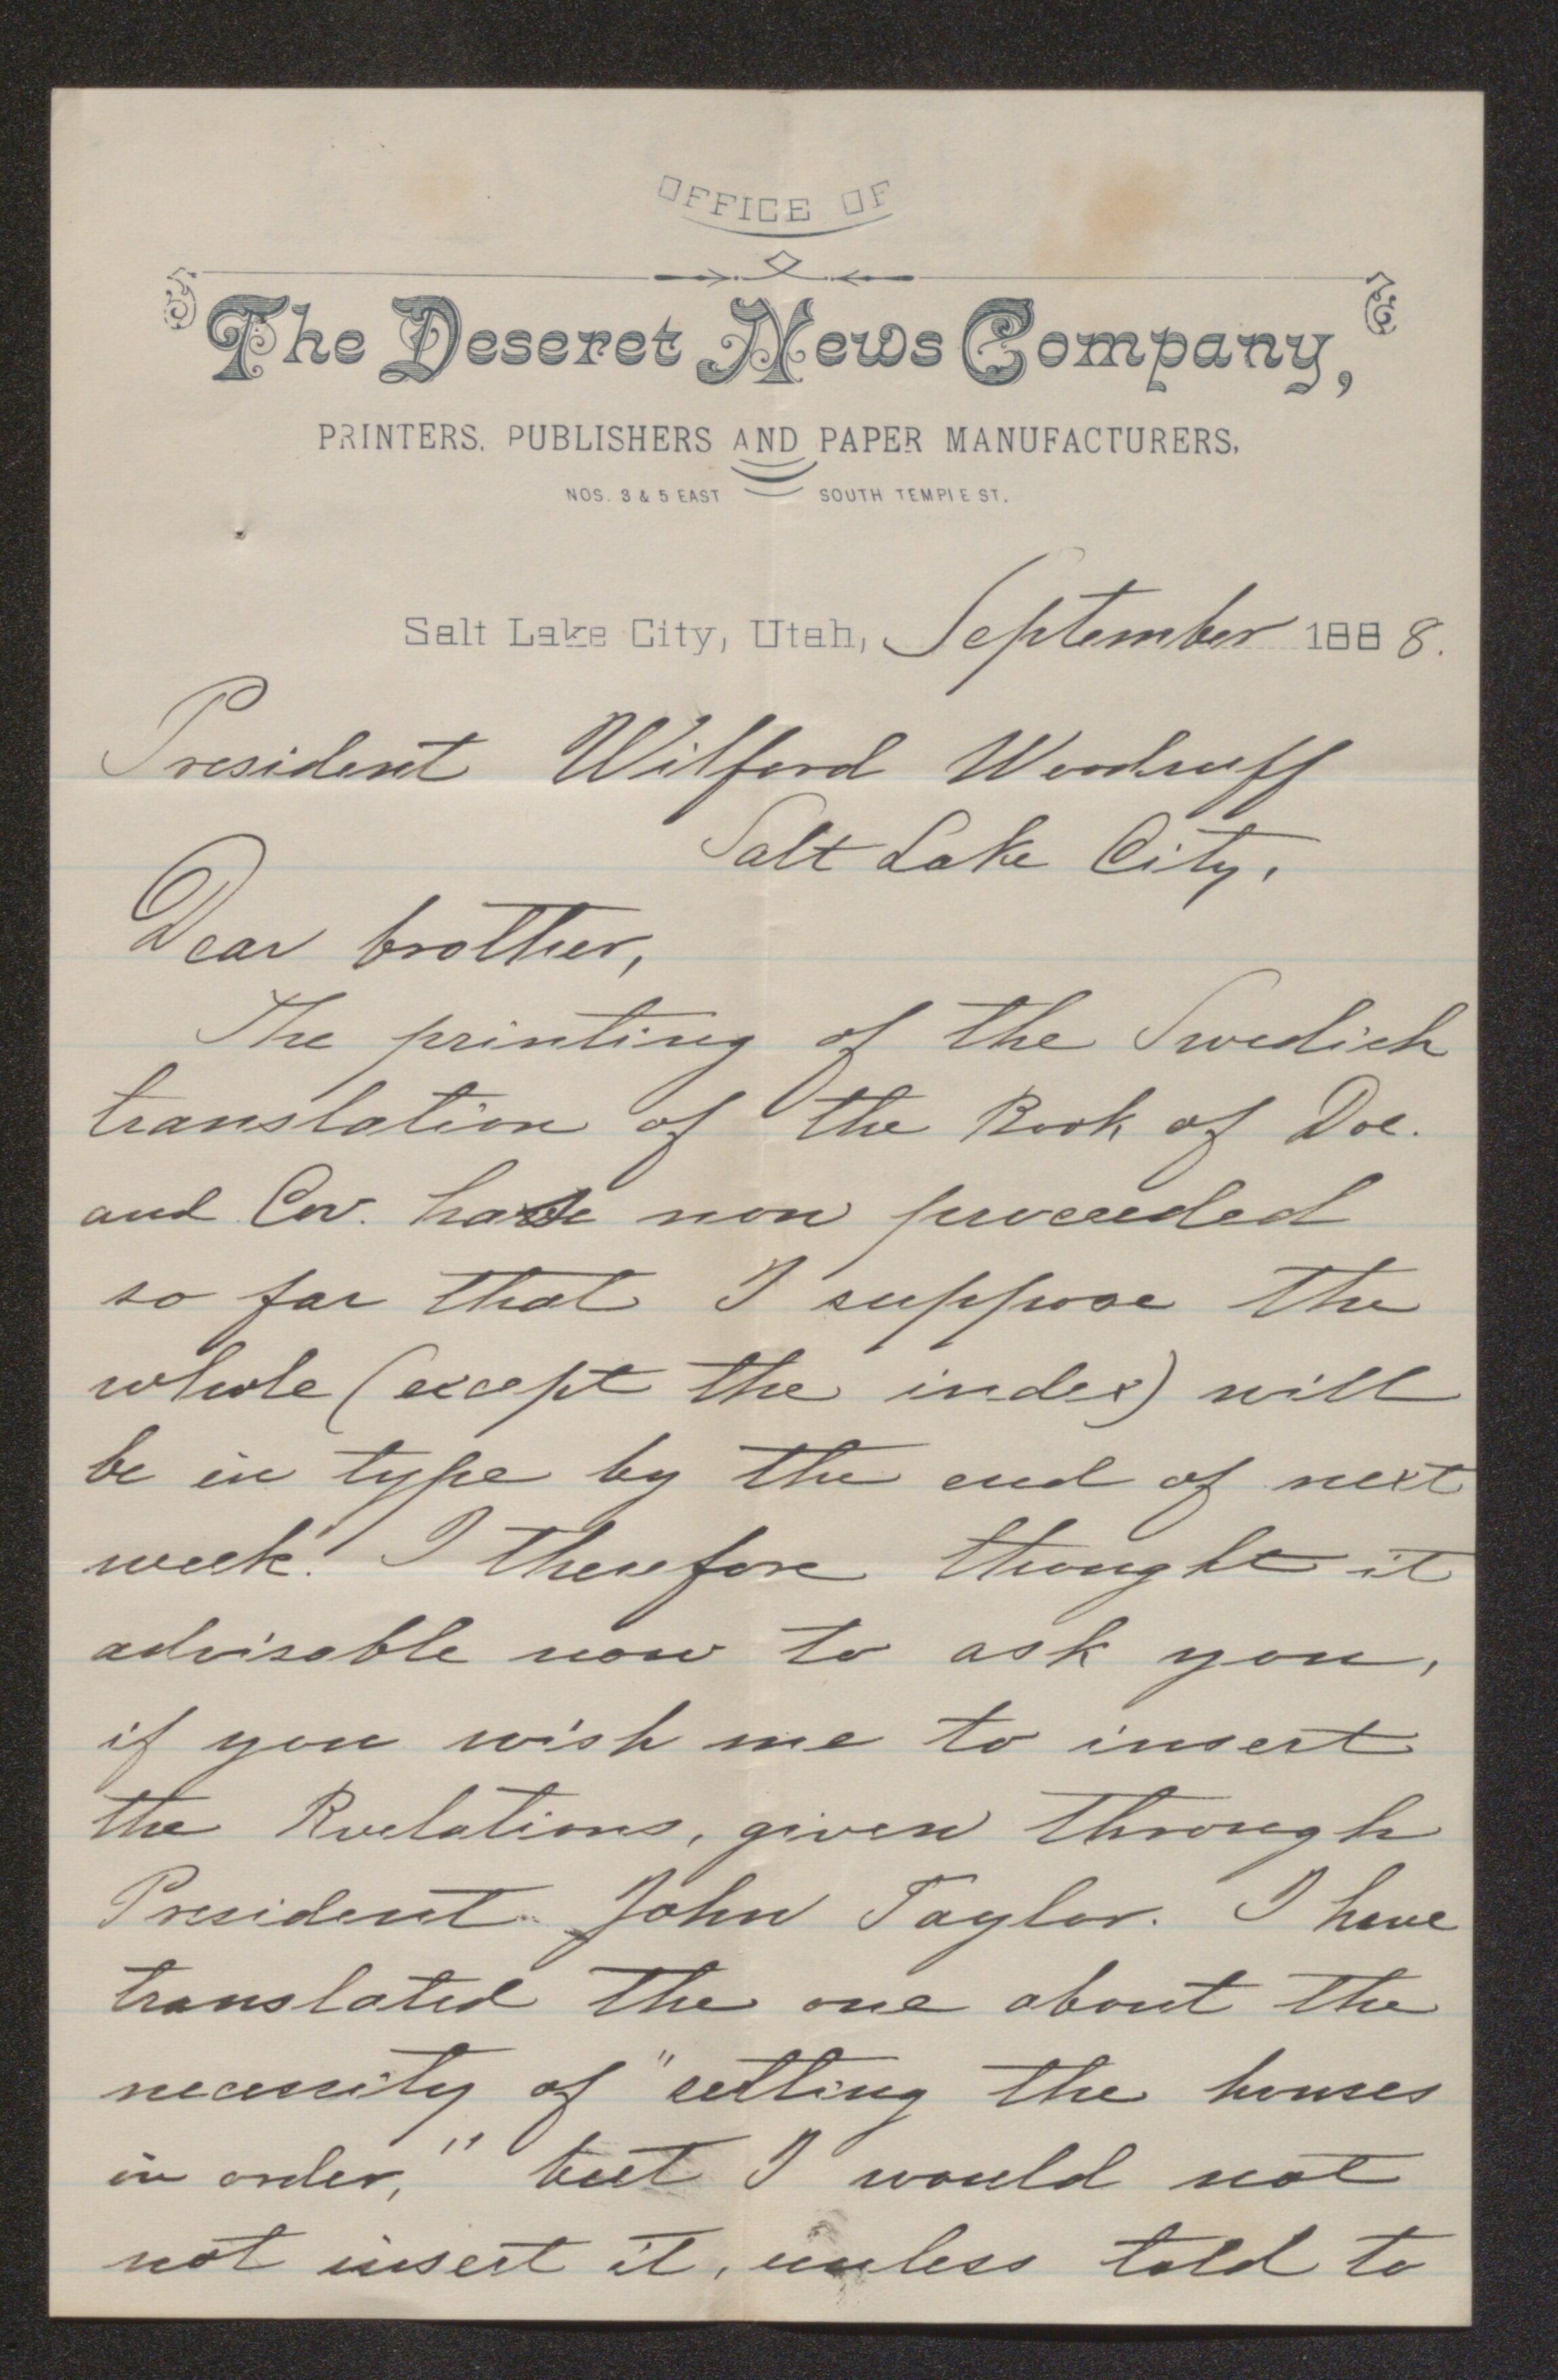 OFFICE OF
The Deseret News Company,
PRINTERS, PUBLISHERS AND PAPER MANUFACTURERS,
NOS. 3 & 5 EAST SOUTH TEMPLE ST.
Salt Lake City, Utah, September 1888.
President Wilford Woodruff
Salt Lake City.
Dear brother,
The printing of the Swedish
translation of the Book of Doc.
and Cov. have now proceeded
so far that I suppose the
whole (except the index) will
be in type by the end of next
week. I therefore thought it
advisable now to ask you,
if you wish me to insert
the Revelations, given through
President John Taylor. I have
translated the one about the
necessity of "setting the houses
in order," but I would not
not insert it, unless told to